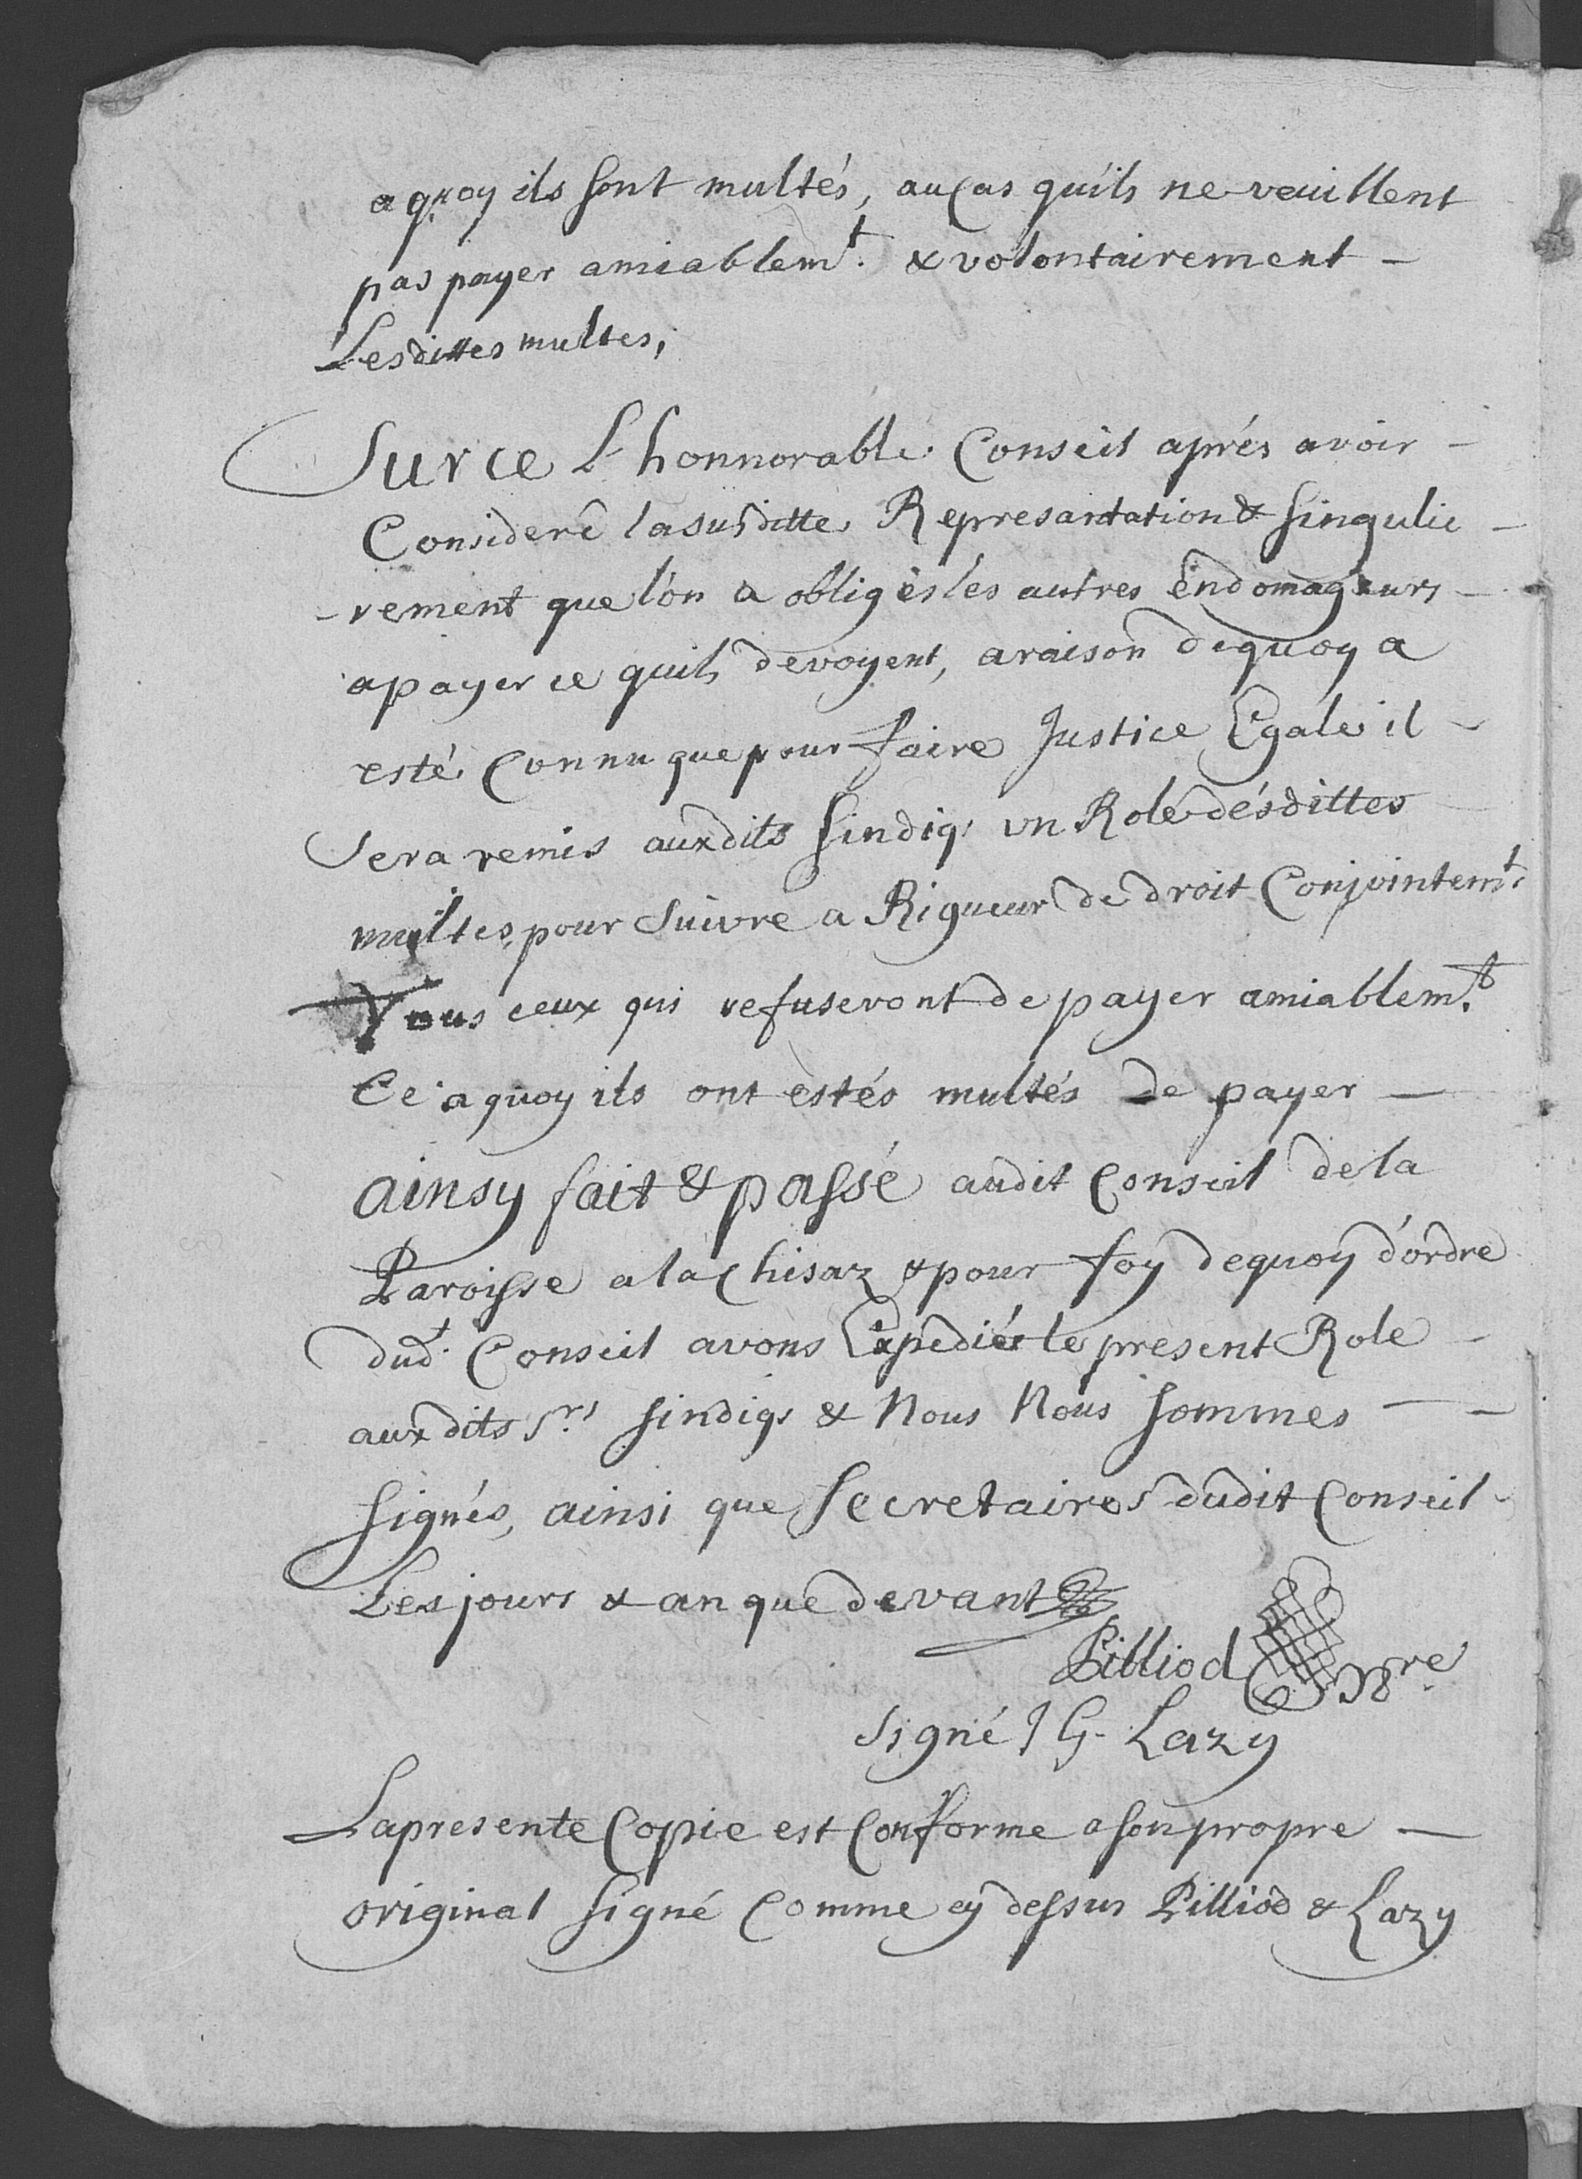 a quoy ils sont multés, au cas qu'ils ne veuillent
pas payer amiablem.t & volontairement -
Lesdittes multes,
Sur ce L'honnorable Conseil aprés avoir -
Consideré la susditte Represantation & singulie -
- rement que l'on a obligés les autres Endomageurs -
a payer ce quils devoyent, a raison dequoy a
esté Connu que pour faire Justice Egale il -
sera remis auxdits sindiqs un Role désdittes
multes, pour suivre a Rigueur de droit Conjointem.t
Tous ceux qui refuseront de payer amiablem.t
Ce a quoy ils ont estés multés de payer -
ainsy fait & passé audit Conseil de la
Paroisse a la Chisaz & pour foy dequoy d'ordre
dud.t Conseil avons Expediér le present Role -
auxdits S.rs sindiqs & Nous Nous sommes -
signés, ainsi que secretaires dudit Conseil -
Les jours & an que devant
Pilliod N.re
signé J G. Lazy
La presente Copie est Conforme a son propre -
original signé Comme cy dessus Pilliod & Lazy